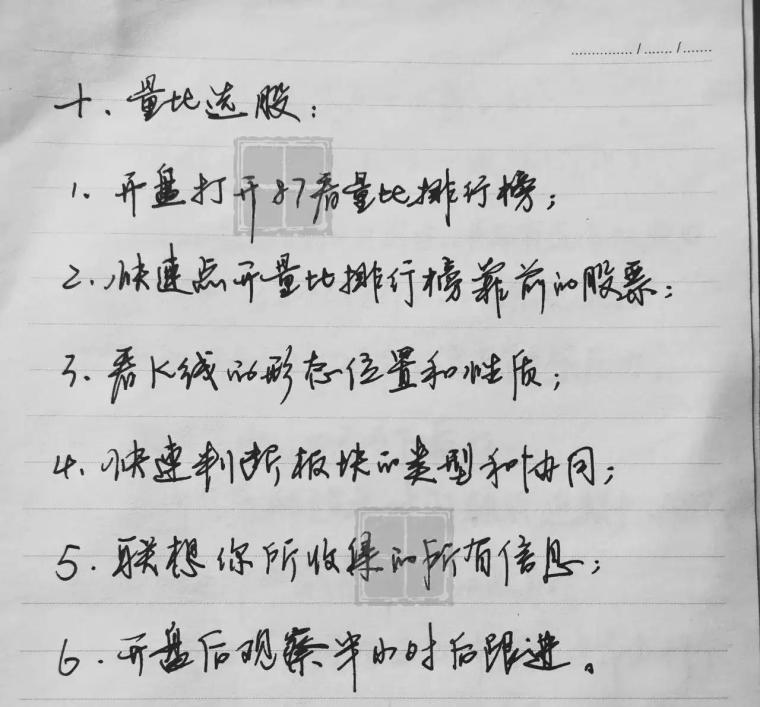 十、量比选股：
1. 开盘打开87看量比排行榜；
2. 快速点开量比排行榜靠前的股票；
3. 看K线的形态位置和性质；
4. 快速判断板块的类型和协同；
5. 联想你所收集的所有信息；
6. 开盘后观察半小时后跟进。